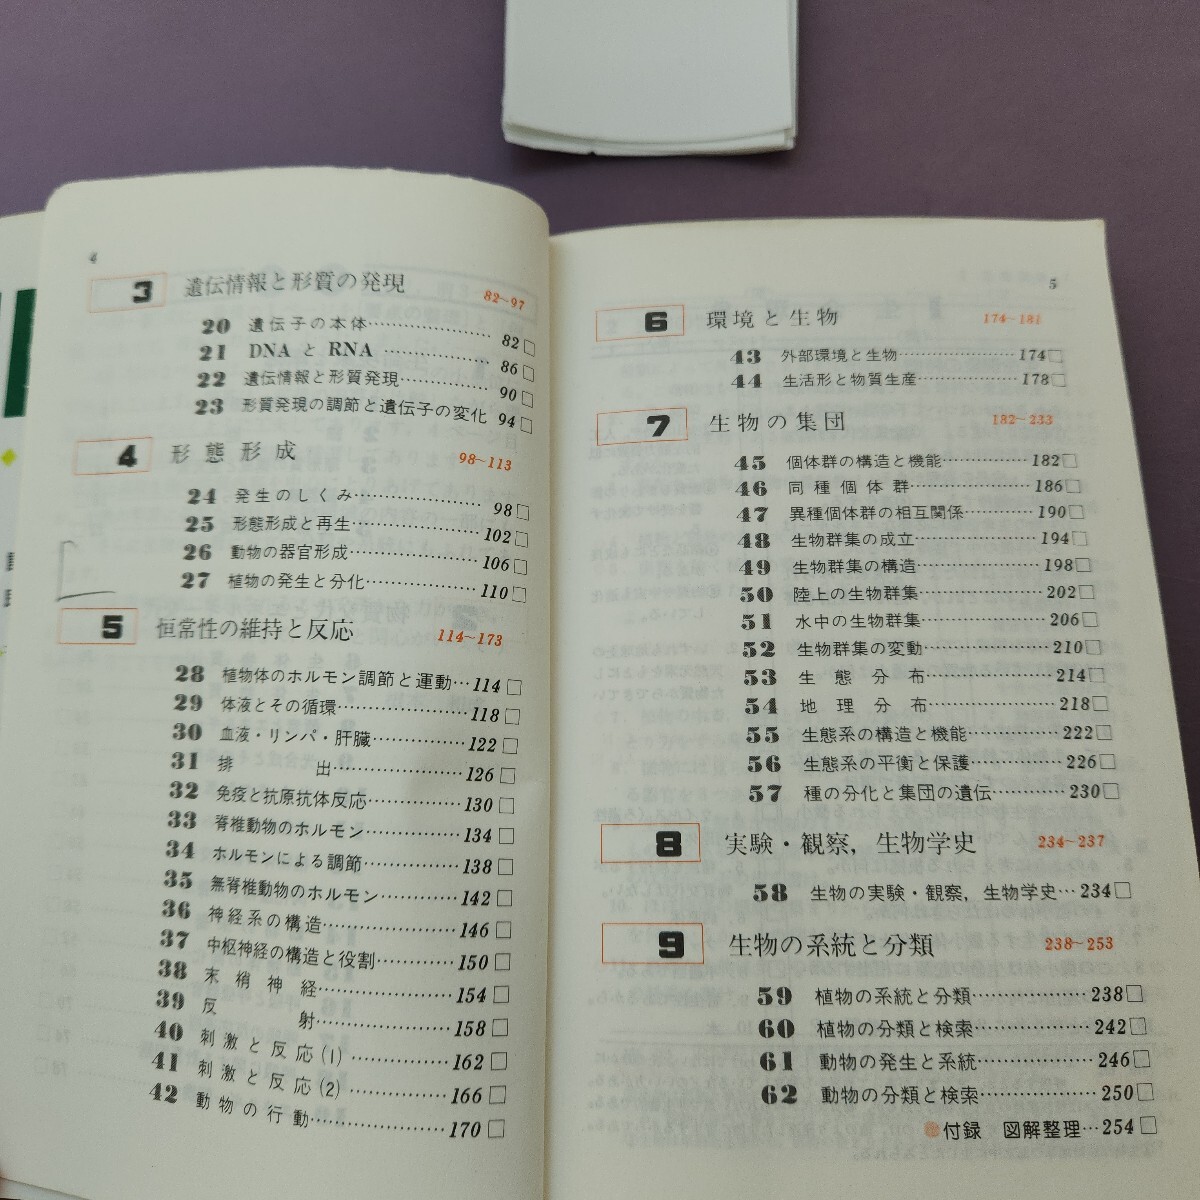 4
3 遺伝情報と形質の発現 82~97
20 遺伝子の本体…………………82□
21 DNA と RNA…………………86□
22 遺伝情報と形質発現……………90□
23 形質発現の調節と遺伝子の変化 94□
4 形態形成 98~113
24 発生のしくみ…………………98□
25 形態形成と再生…………………102□
26 動物の器官形成…………………106□
27 植物の発生と分化………………110□
5 恒常性の維持と反応 114~173
28 植物体のホルモン調節と運動…114□
29 体液とその循環…………………118□
30 血液・リンパ・肝臓……………122□
31 排出…………………126□
32 免疫と抗原抗体反応……………130□
33 脊椎動物のホルモン……………134□
34 ホルモンによる調節……………138□
35 無脊椎動物のホルモン…………142□
36 神経系の構造…………………146□
37 中枢神経の構造と役割…………150□
38 末梢神経…………………154□
39 反射…………………158□
40 刺激と反応(1)…………………162□
41 刺激と反応(2)…………………166□
42 動物の行動…………………170□
5
6 環境と生物 174~181
43 外部環境と生物…………………174□
44 生活形と物質生産………………178□
7 生物の集団 182~233
45 個体群の構造と機能……………182□
46 同種個体群…………………186□
47 異種個体群の相互関係…………190□
48 生物群集の成立…………………194□
49 生物群集の構造…………………198□
50 陸上の生物群集…………………202□
51 水中の生物群集…………………206□
52 生物群集の変動…………………210□
53 生態分布…………………214□
54 地理分布…………………218□
55 生態系の構造と機能……………222□
56 生態系の平衡と保護……………226□
57 種の分化と集団の遺伝…………230□
8 実験・観察，生物学史 234~237
58 生物の実験・観察，生物学史…234□
9 生物の系統と分類 238~253
59 植物の系統と分類………………238□
60 植物の分類と検索………………242□
61 動物の発生と系統………………246□
62 動物の分類と検索………………250□
付録 図解整理…254□